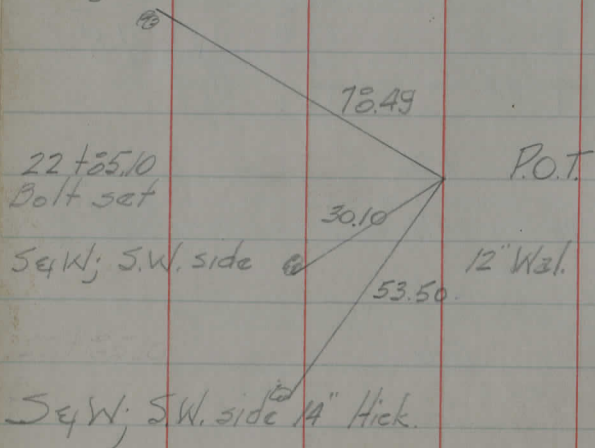 78.49
22+85.10 P.O.T.
Bolt set
30.10
S&W; S.W. side 12" Wal.
53.50
S&W; S.W. side 14" Hick.